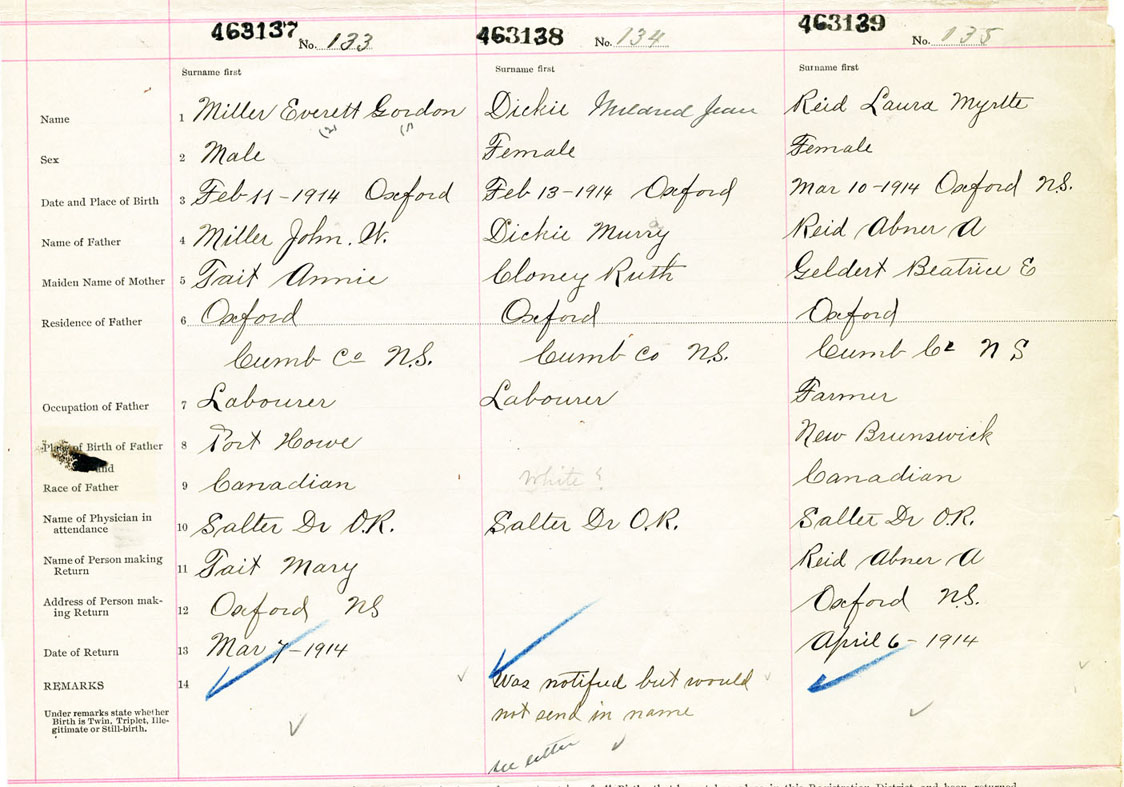 463137 No. 133 463138 No. 134 463139 No. 135
Surname first Surname first Surname first
Name 1 Miller Everett Gordon Dickie Mildred Jean Reid Laura Myrtle
(2) (1)
Sex 2 Male Female Female
Date and Place of Birth 3 Feb 11-1914 Oxford Feb 13-1914 Oxford Mar 10-1914 Oxford N.S.
Name of Father 4 Miller John. W. Dickie Murry Reid Abner A
Maiden Name of Mother 5 Tait Annie Cloney Ruth Geldert Beatrice E
Residence of Father 6 Oxford Oxford Oxford
Cumb Co N.S. Cumb Co N.S. Cumb Co N S
Occupation of Father 7 Labourer Labourer Farmer
Place of Birth of Father 8 Port Howe New Brunswick
and
Race of Father 9 Canadian White? Canadian
Name of Physician in
attendance 10 Salter Dr O.R. Salter Dr O.R. Salter Dr O.R.
Name of Person making
Return 11 Tait Mary Reid Abner A
Address of Person mak-
ing Return 12 Oxford NS Oxford N.S.
Date of Return 13 Mar 7-1914 April 6-1914
REMARKS 14 Was notified but would
Under remarks state whether
Birth is Twin, Triplet, Ille-
gitimate or Still-birth.
not send in name
see letter